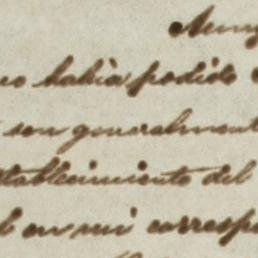 Aunq
no había podido
son generalment
stablecimiento del
en mi corresp